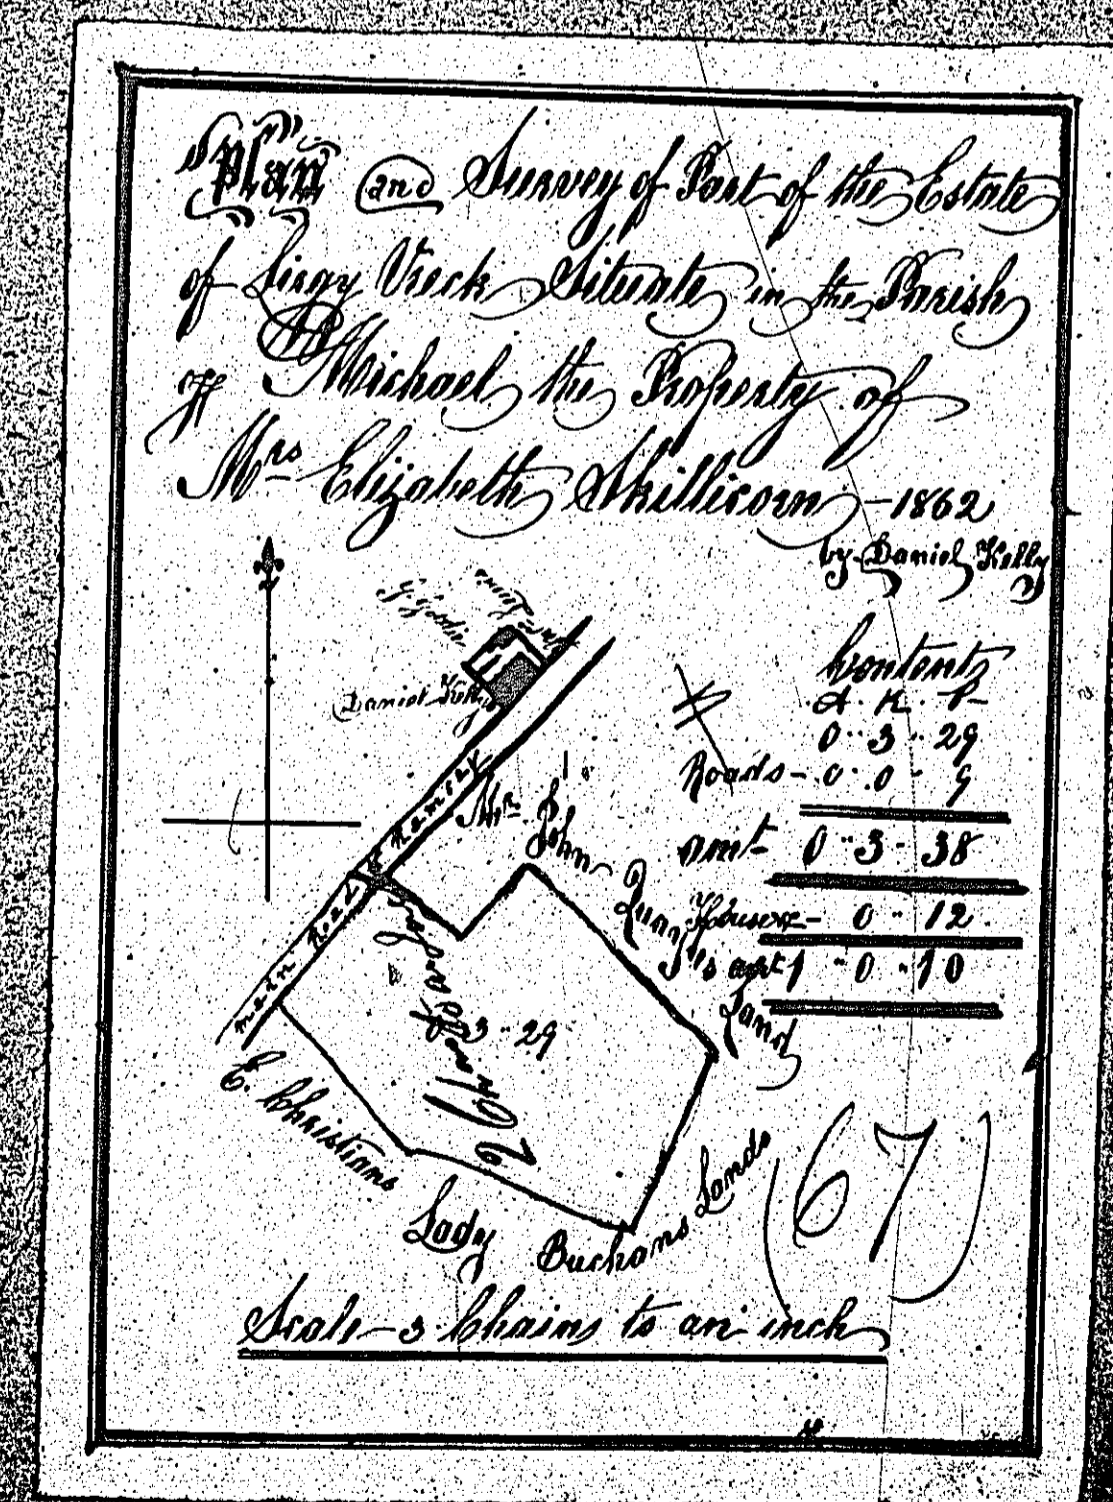 Plan and Survey of Part of the Estate
of Situate in the Parish
of Michael the Property of
Mrs Elizabeth Skillicorn - 1862
by Daniel Kelly
Contents
A. R. P
0 .. 3 .. 29
Roads - 0 .. 0 - 9
amt 0 .. 3 - 38
Houses - 0 - 12
amt 1 - 0 - 10
Daniel Kelly
main road to ramsey
Mr. John Quayle's Land
3 - 29
E. Christians
Lady Buchans Lands
(67)
Scale - 3 Chains to an inch